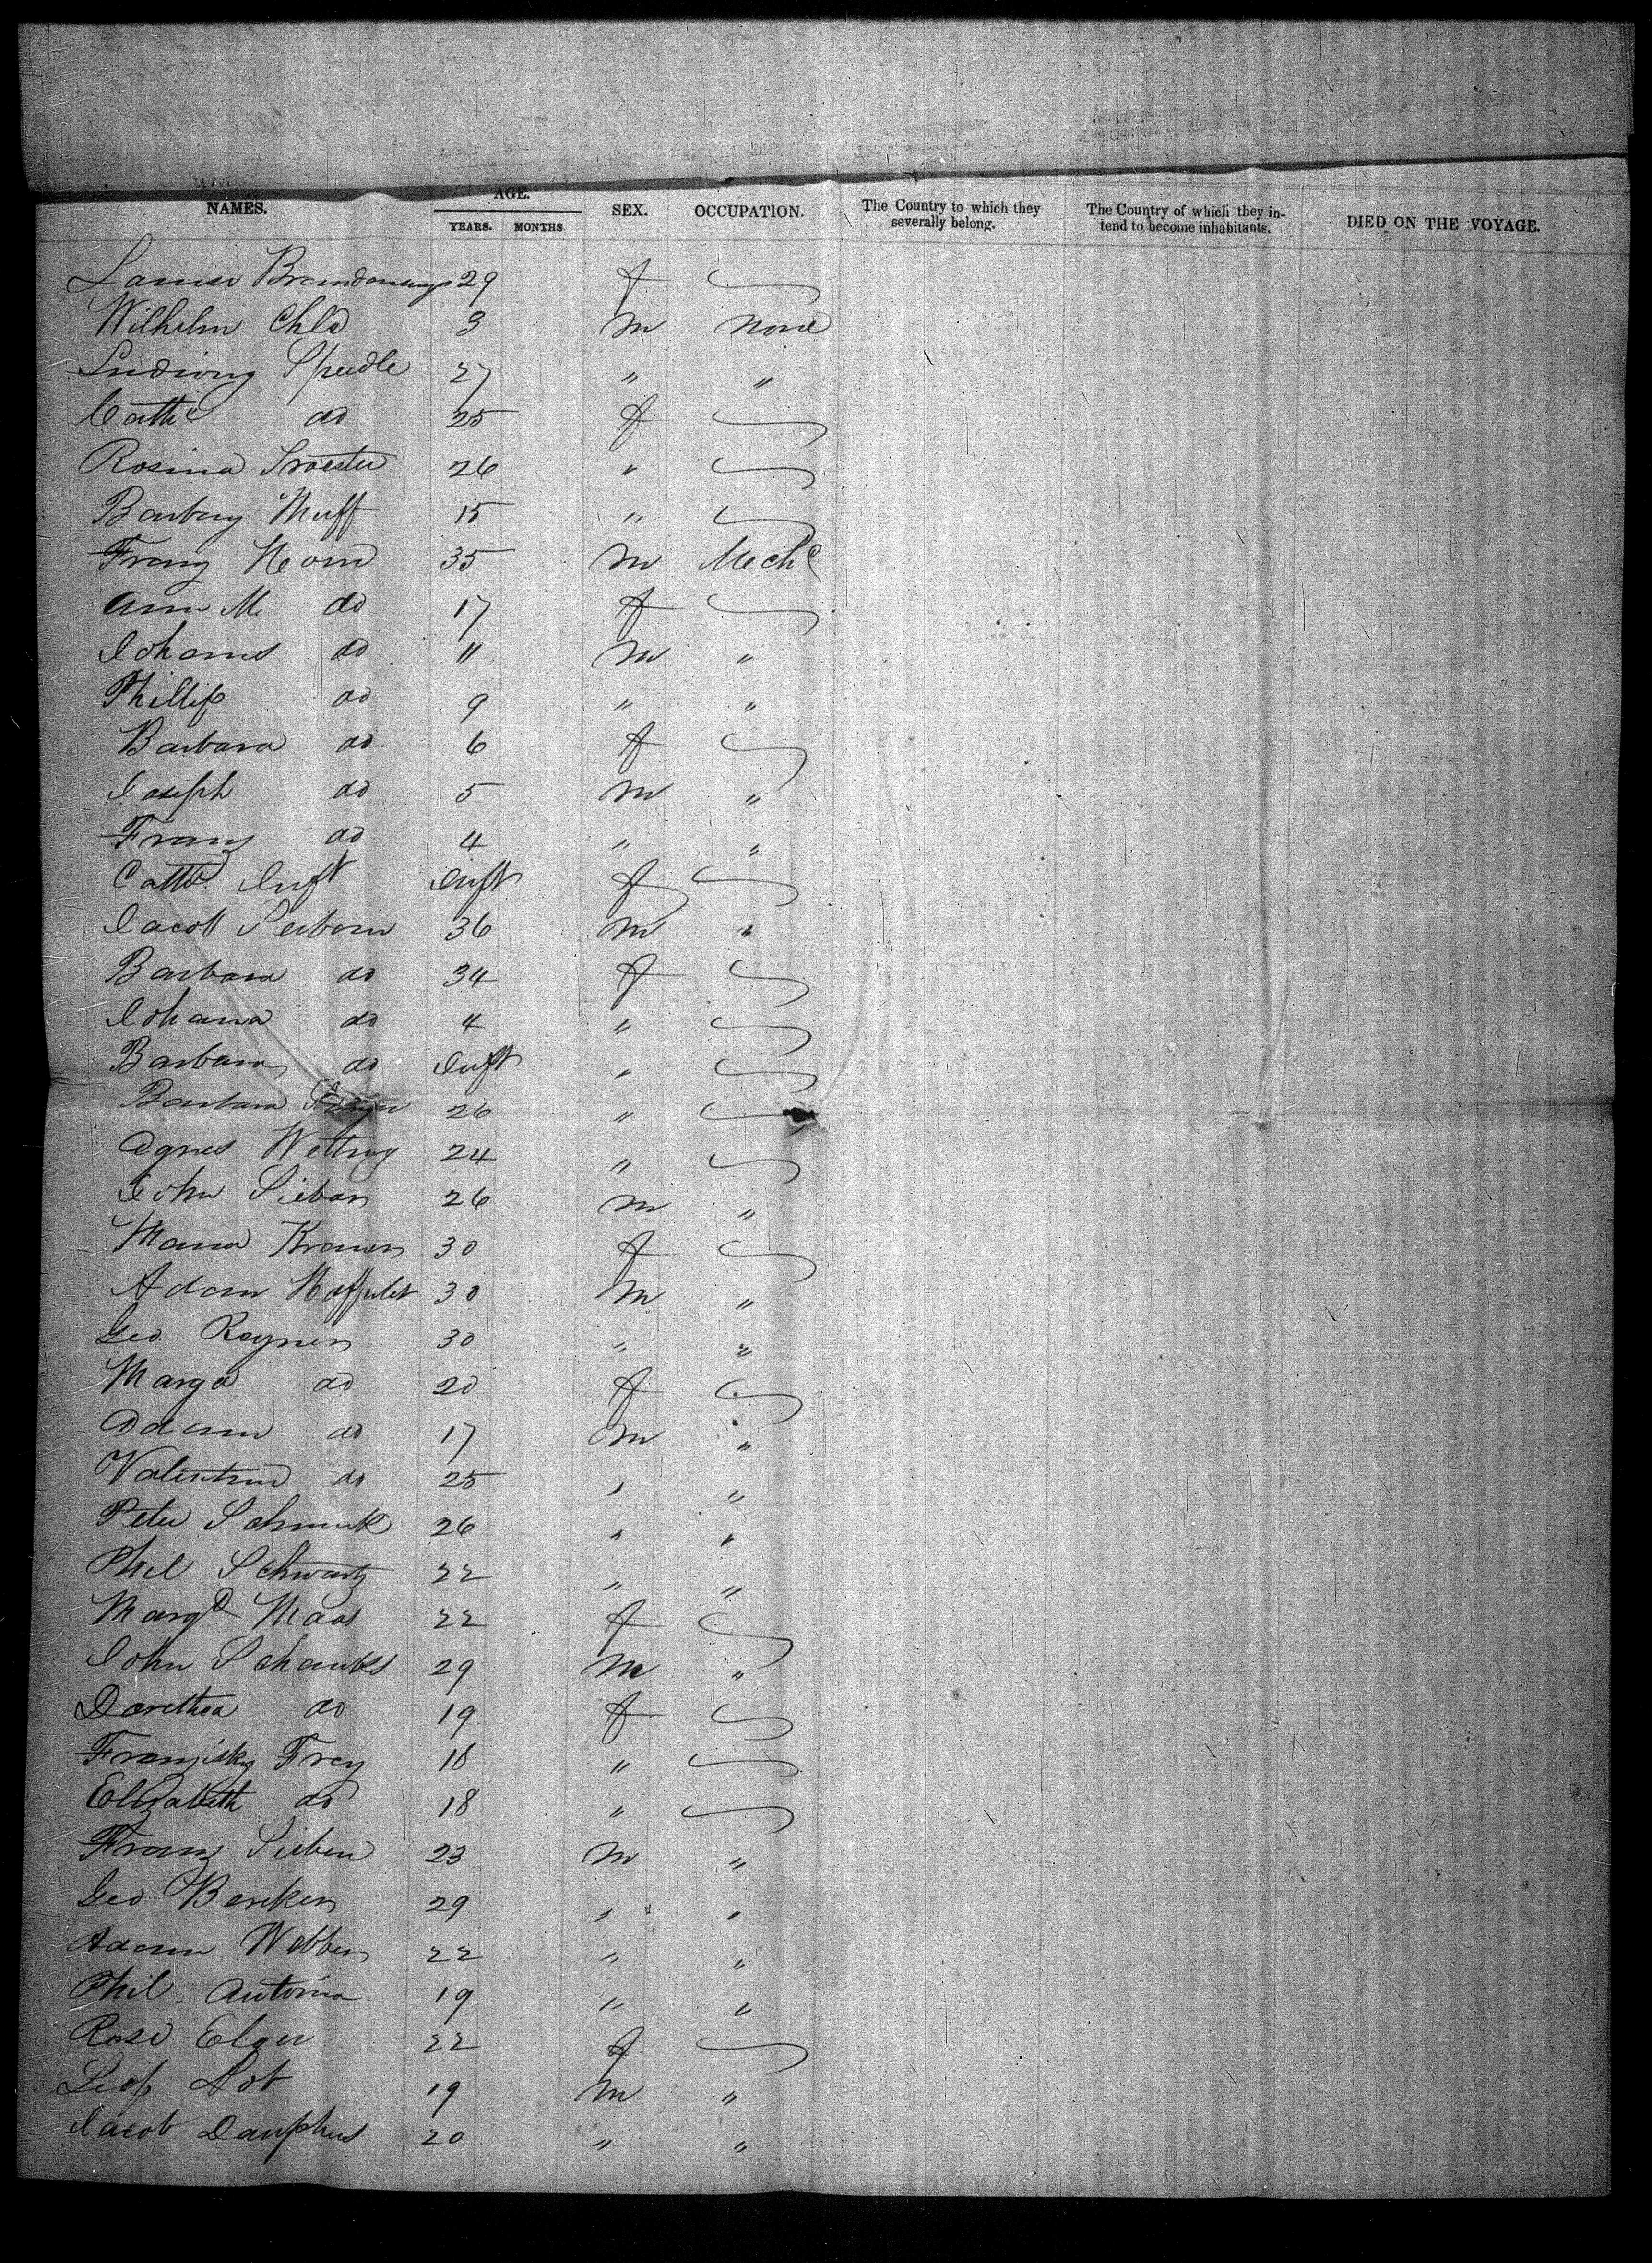 NAMES. AGE. YEARS. MONTHS. SEX. OCCUPATION. The Country to which they severally belong. The Country of which they intend to become inhabitants. DIED ON THE VOYAGE.
29 f
Wilhelm Chld 3 m None
Ludiwng Speidle 27 " "
Cathe do 25 f
Rosina 26 "
Barbary Muff 15 "
Franz Horn 35 m Mechc
Ann M. do 17 f
Johanes do 11 m "
Phillip do 9 " "
Barbara do 6 f
Joseph do 5 m "
Franz do 4 " "
Cathe. Inft Inft f
Jacob Seiborn 36 m "
Barbara do 34 f
Johana do 4 "
Barbara do Inft "
Barbara 26 "
Agnes Wetting 24 "
John Sieban 26 m "
Maria Kramer 30 f
Adam 30 m "
Geo. Rayner 30 " "
Marga do 20 f
Adam do 17 m "
Valentine do 25 " "
Peter Schmuk 26 " "
Phil Schwartz 22 " "
Margt Maas 22 f
John Schanks 29 m "
Dorethea do 19 f
Franzisky Frey 18 "
Elizabeth do 18 "
Franz Sieben 23 m "
Geo. Berker 29 " "
Adam Webber 22 " "
Phil. Antoria 19 " "
Rosi Elger 22 f
Leop Hot 19 m "
Jacob Dauphus 20 " "